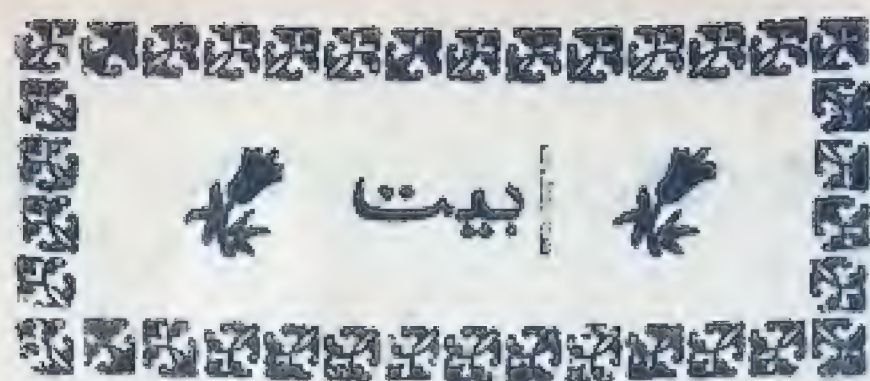 بيت